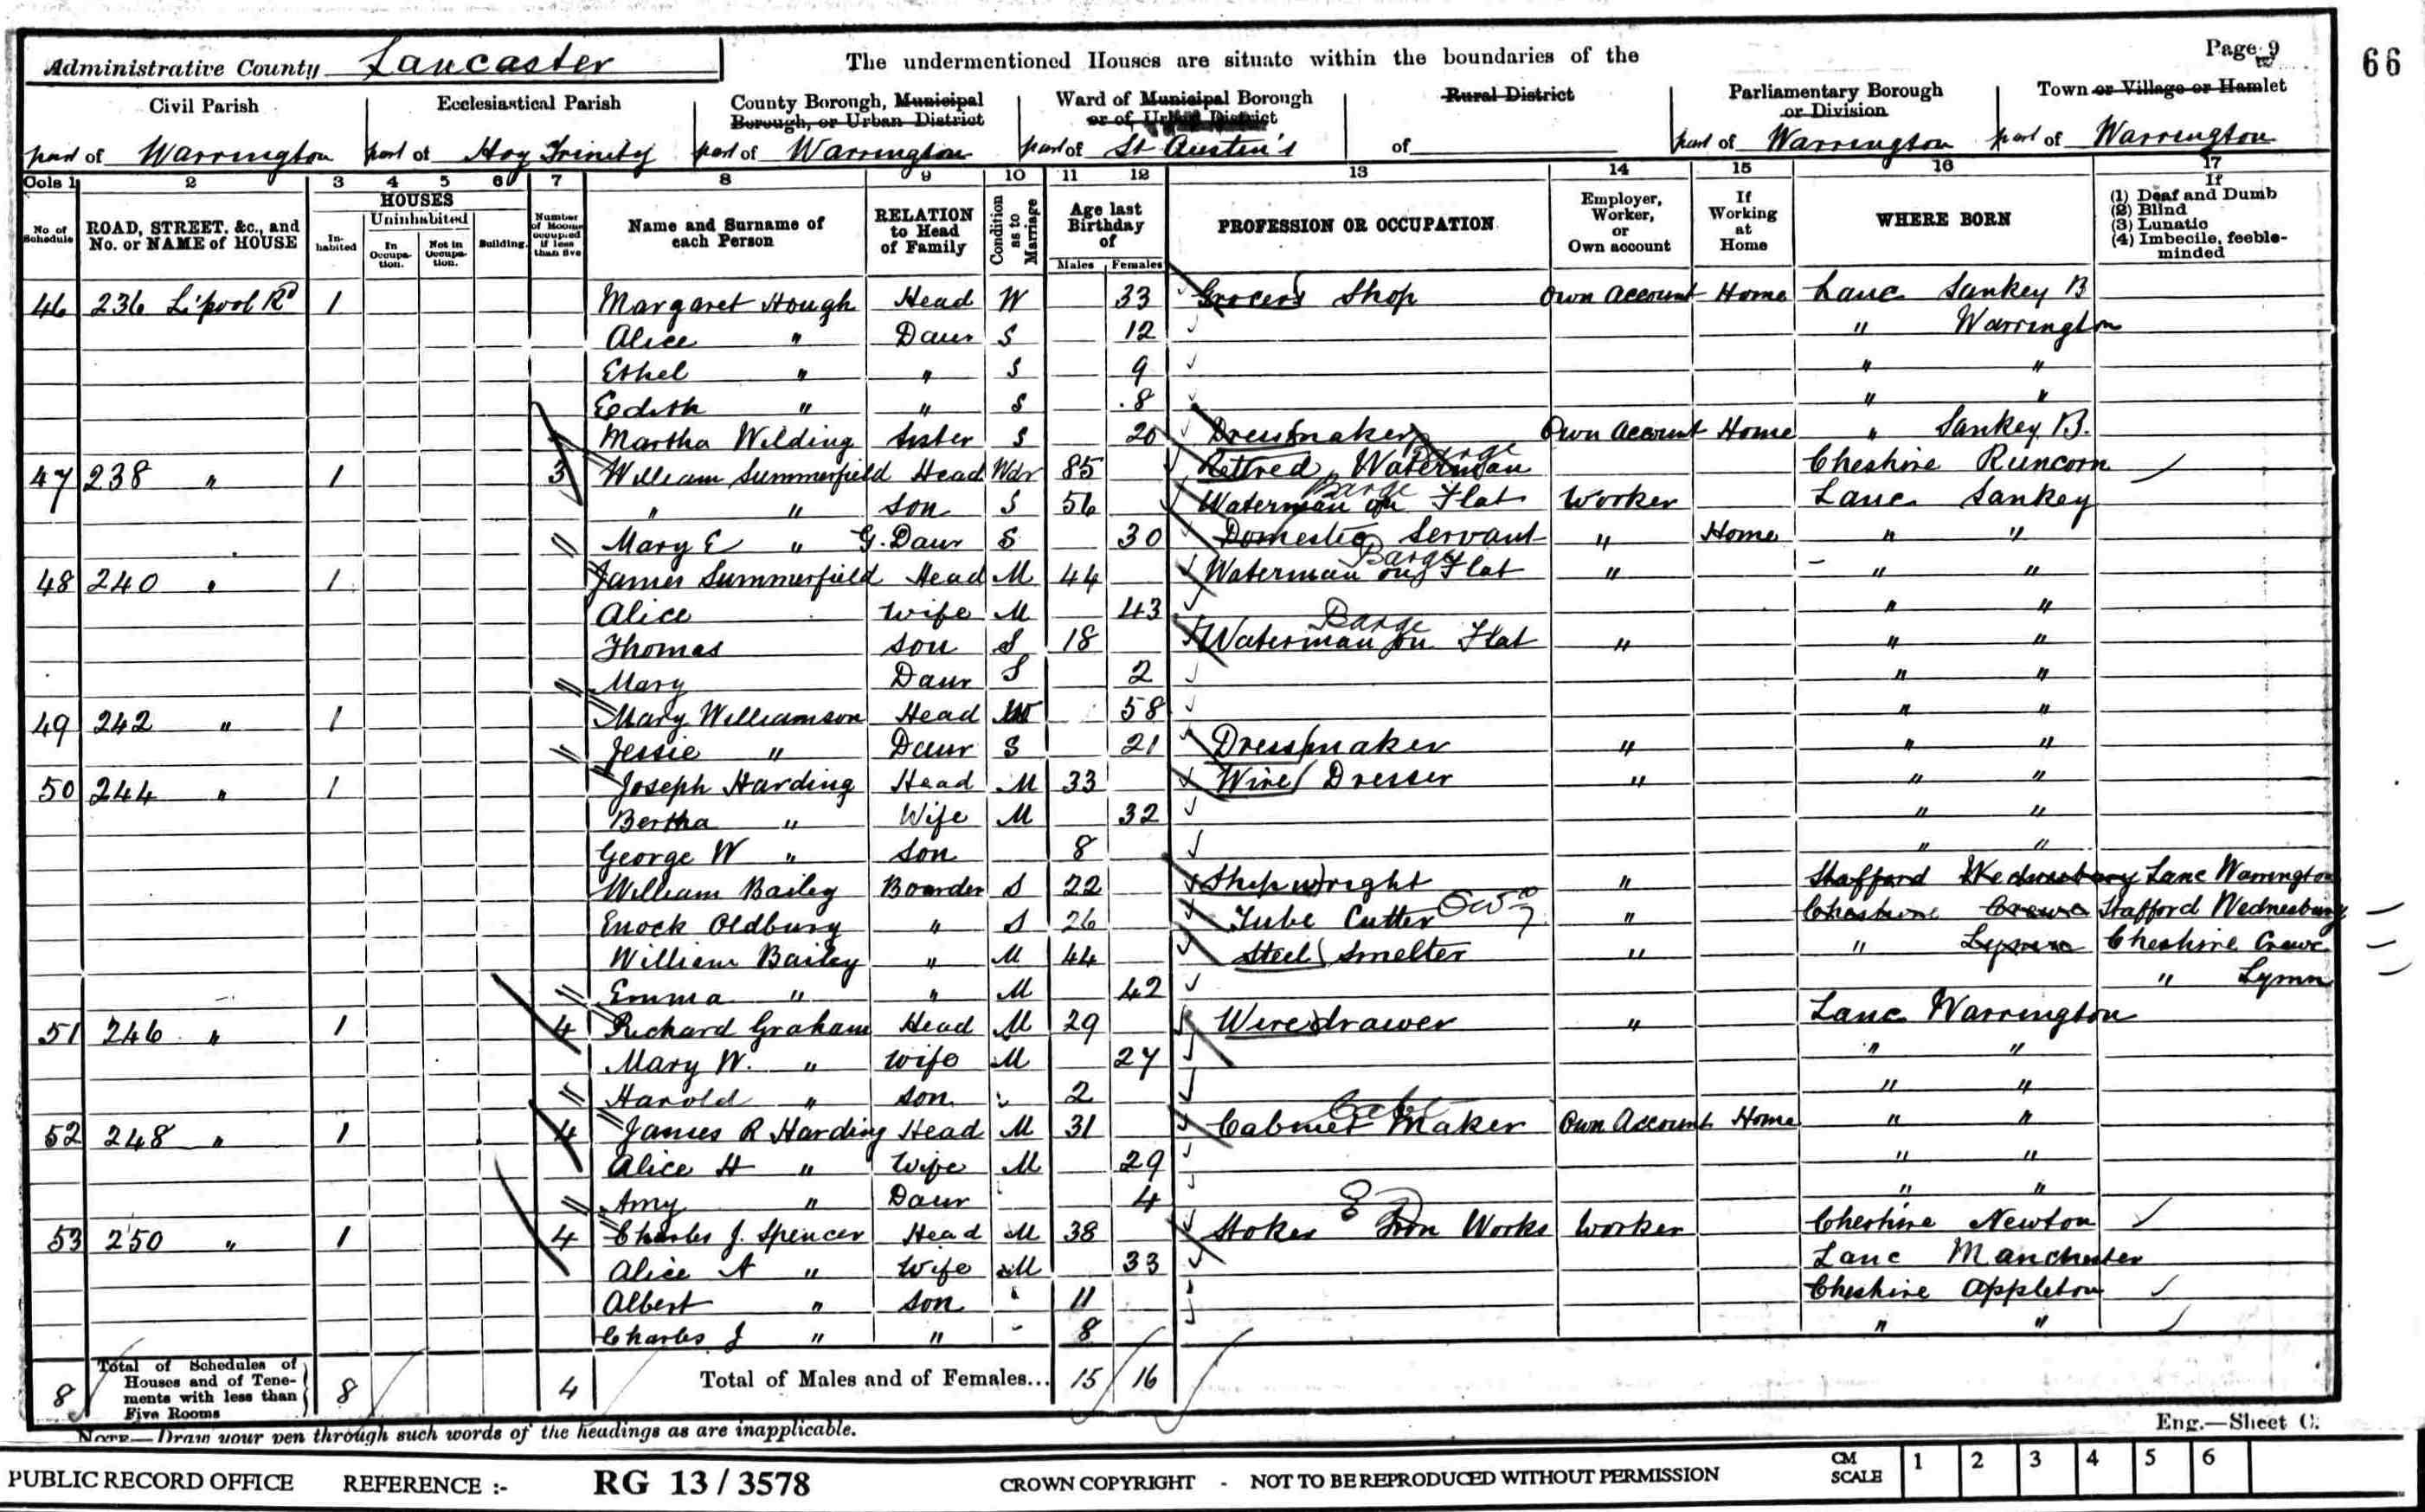 Administrative County Lancaster The undermentioned Houses are situate within the boundaries of the Page 9 66
Civil Parish Ecclesiastical Parish County Borough, Municipal Borough, or Urban District Ward of Municipal Borough or of Urban District Rural District Parliamentary Borough or Division Town or Village or Hamlet
part of Warrington part of Hoy Trinity part of Warrington part of St Austin's of part of Warrington part of Warrington
Cols 1 2 3 4 5 6 7 8 9 10 11 12 13 14 15 16 17
No. of Schedule ROAD, STREET, &c., and No. or NAME of HOUSE HOUSES Inhabited Uninhabited In Occupation. Not in Occupation. Building. Number of Rooms occupied if less than five Name and Surname of each Person RELATION to Head of Family Condition as to Marriage Age last Birthday of Males Females PROFESSION OR OCCUPATION Employer, Worker, or Own account If Working at Home WHERE BORN If (1) Deaf and Dumb (2) Blind (3) Lunatic (4) Imbecile, feeble-minded
46 236 L'pool Rd 1 Margaret Hough Head W 33 Grocer's Shop Own Account Home Lanc Sankey B
Alice " Daur S 12 " Warrington
Ethel " " S 9 " "
Eedith " " S 8 " "
Martha Wilding Sister S 20 Dressmaker Own Account Home " Sankey B.
47 238 " 1 3 William Summerfield Head Wdr 85 Retired Waterman Barge Cheshire Runcorn
" " Son S 56 Waterman on Flat Barge Worker Lanc Sankey
Mary E " G. Daur S 30 Domestic Servant " Home " "
48 240 " 1 James Summerfield Head M 44 Waterman on Flat Barge " " "
Alice Wife M 43 " "
Thomas Son S 18 Waterman on Flat Barge " " "
Mary Daur S 2 " "
49 242 " 1 Mary Williamson Head W 58 " "
Jessie " Daur S 21 Dressmaker " " "
50 244 " 1 Joseph Harding Head M 33 Wire Dresser " " "
Bertha " Wife M 32 " "
George W " Son 8 " "
William Bailey Boarder S 22 Shipwright " Stafford Wednesbury Lanc Warrington
Enock Oldbury " S 26 Tube Cutter " Cheshire Crewe Stafford Wednesbury
William Bailey " M 44 Steel Smelter " " Lymm Cheshire Crewe
Emma " " M 42 " Lymm
51 246 " 1 4 Richard Graham Head M 29 Wiredrawer " Lanc Warrington
Mary W. " Wife M 27 " "
Harold " Son 2 " "
52 248 " 1 4 James R Harding Head M 31 Cabinet Maker Own Account Home " "
Alice H " Wife M 29 " "
Amy " Daur 4 " "
53 250 " 1 4 Charles J. Spencer Head M 38 Stoker Iron Works Worker Cheshire Newton
Alice A " Wife M 33 Lanc Manchester
Albert " Son 11 Cheshire Appleton
Charles J " " 8 " "
8 Total of Schedules of Houses and of Tenements with less than Five Rooms 8 4 Total of Males and of Females... 15 16
NOTE—Draw your pen through such words of the headings as are inapplicable. Eng.—Sheet C.
PUBLIC RECORD OFFICE REFERENCE :- RG 13 / 3578 CROWN COPYRIGHT - NOT TO BE REPRODUCED WITHOUT PERMISSION CM SCALE 1 2 3 4 5 6